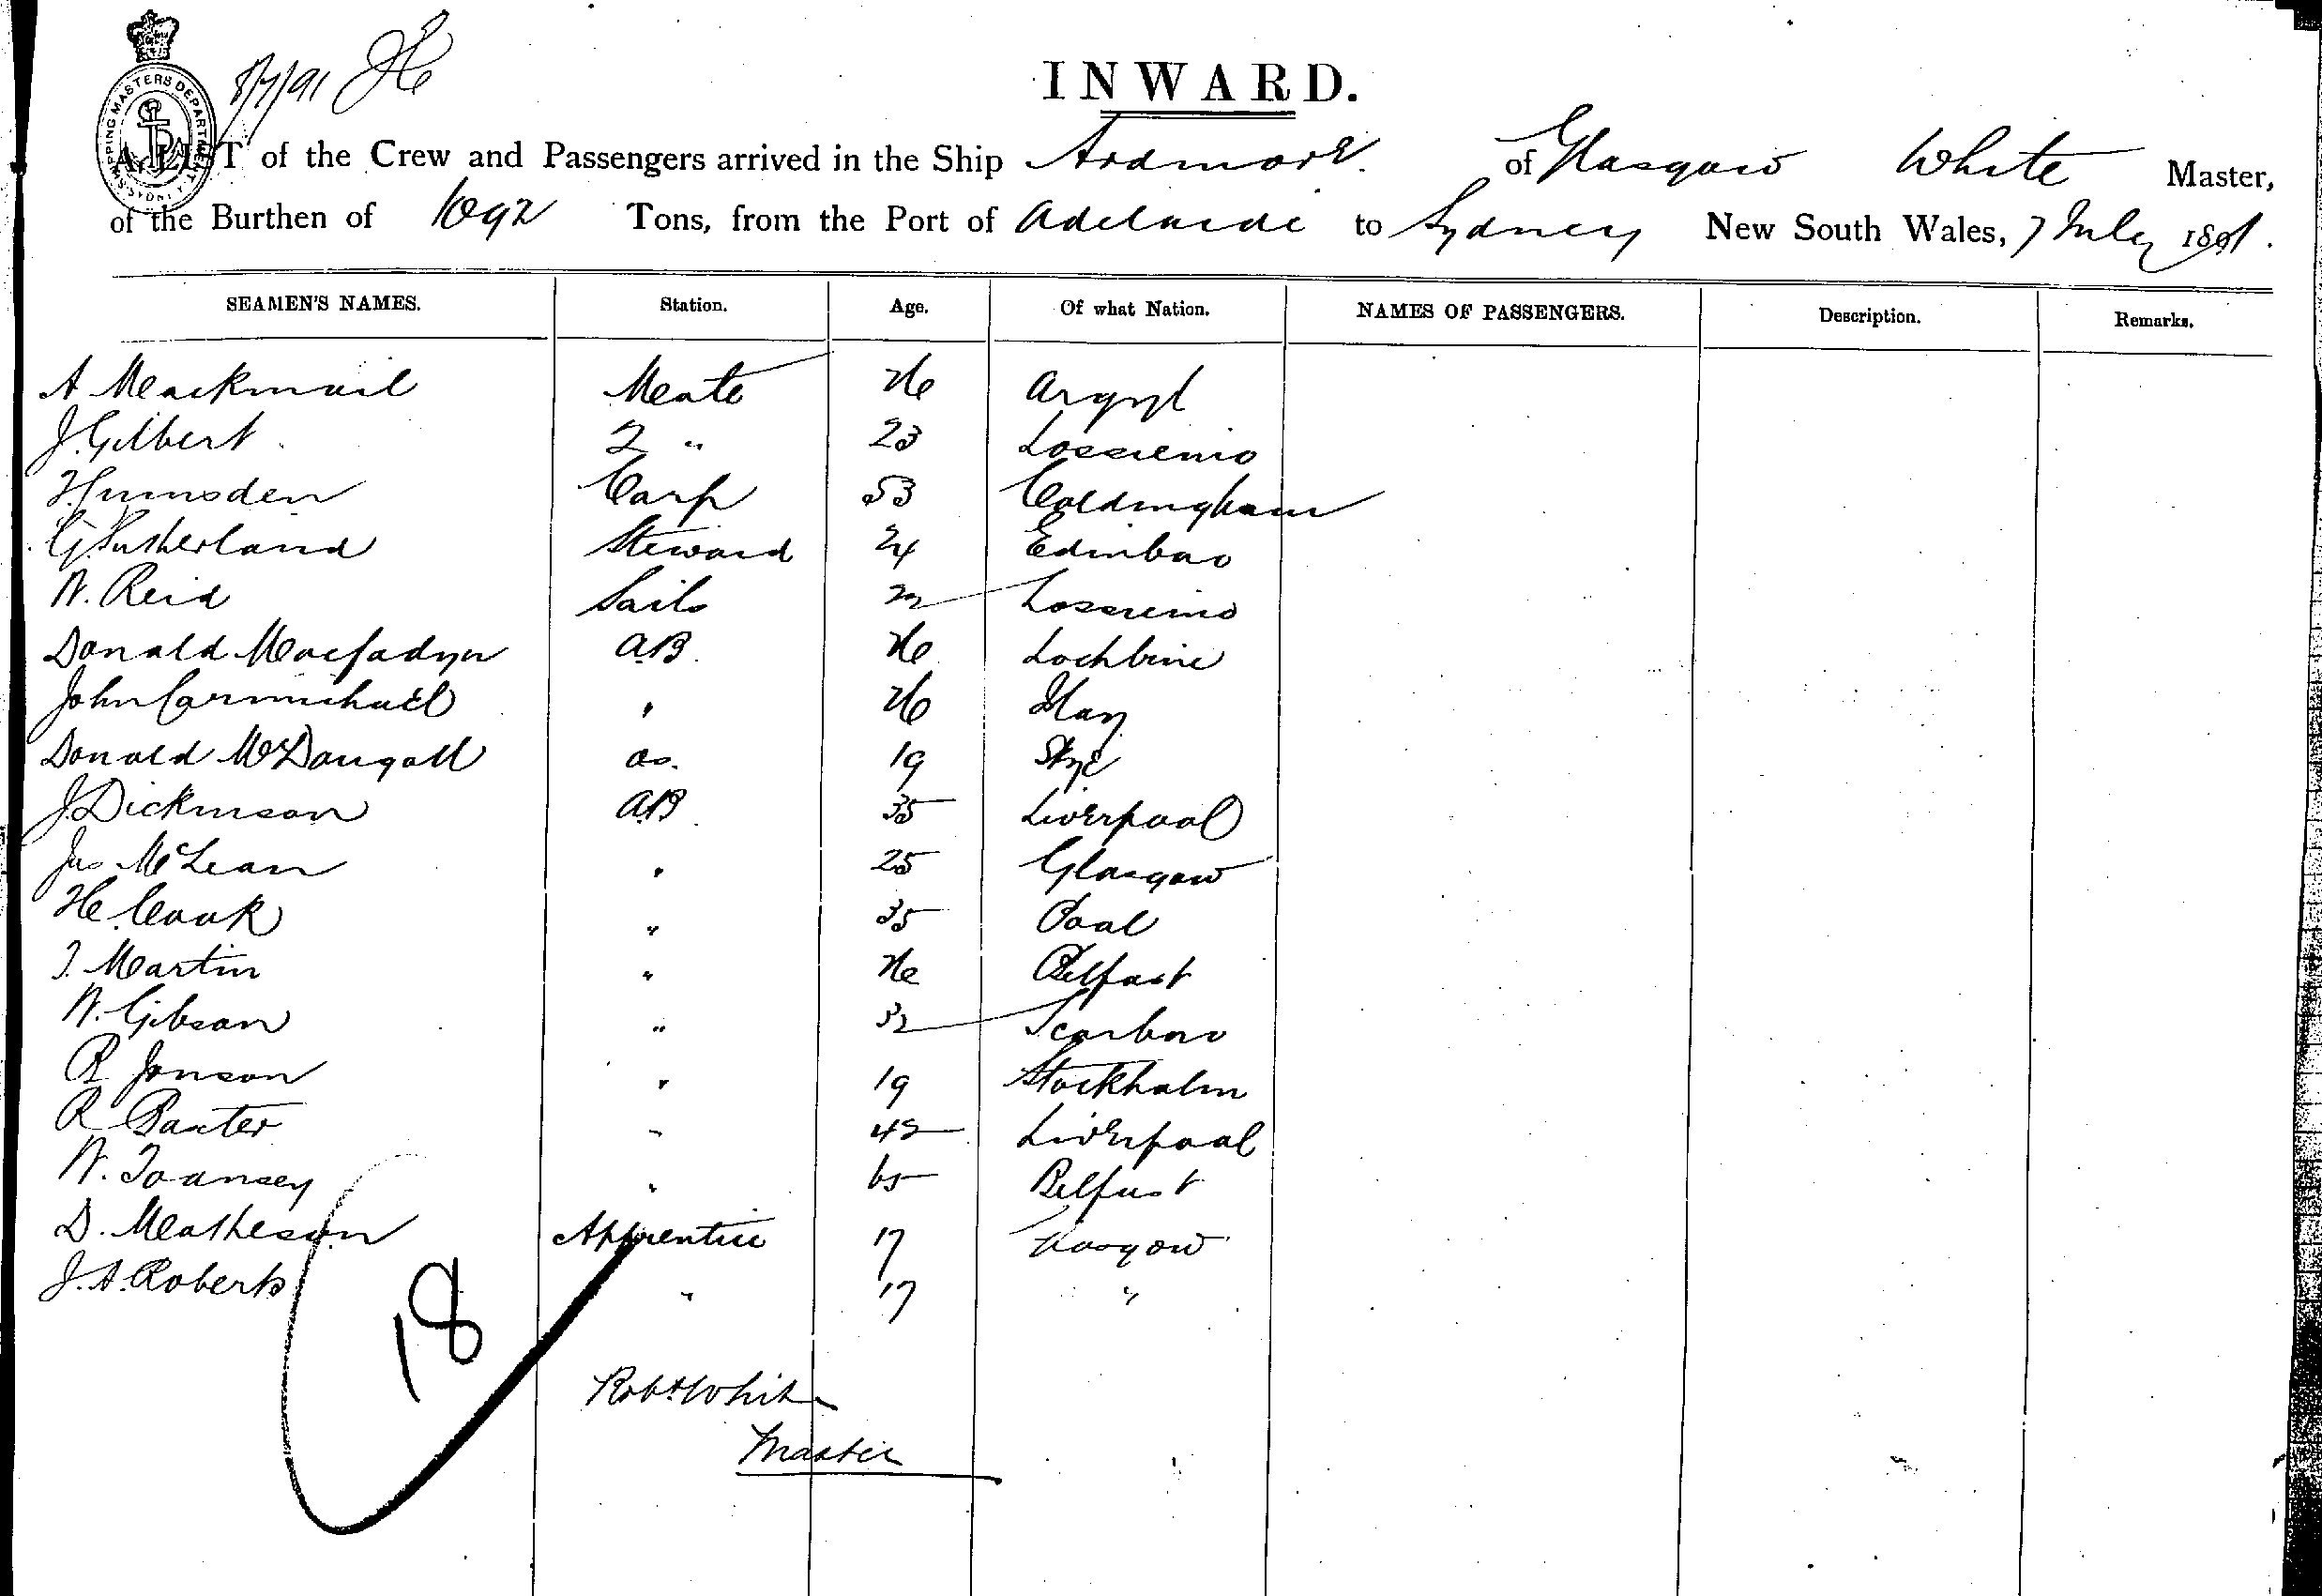 SHIPPING MASTERS DEPARTMENT SYDNEY
8/7/91
INWARD.
A LIST of the Crew and Passengers arrived in the Ship Ardmore. of Glasgow White Master,
of the Burthen of 1092 Tons, from the Port of Adelaide to Sydney New South Wales, 7 July 1891.
SEAMEN'S NAMES. Station. Age. Of what Nation. NAMES OF PASSENGERS. Description. Remarks.
A Mate 26 Argyl
J. Gilbert 2 " 23
Carp 53 Coldingham
G. Sutherland Steward 24 Edinboro
W. Reid Sails 22
Donald Macfadyn A.B. 26
John Carmichael " 26 Islay
Donald McDougall o.s. 19 Skye
J. Dickinson A.B. 35 Liverpool
Jas McLean " 25 Glasgow
H. Cook " 35 Pool
J. Martin " 26 Belfast
W. Gibson " 32 Scarboro
R Jonson " 19 Stockholm
R Baxter " 42 Liverpool
W. " 65 Belfast
D. Matheson Apprentice 17 Glasgow
J. A. Roberts " 17 "
18
Robt White
Master